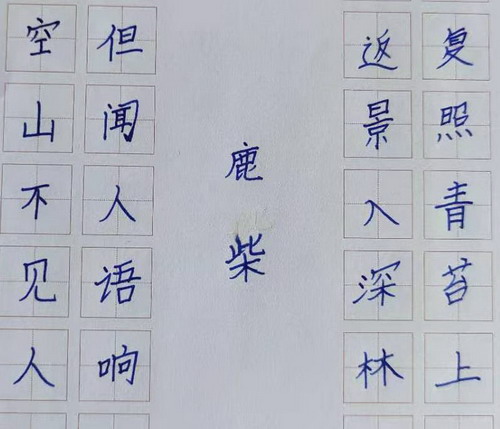 空山不见人
但闻人语响
鹿柴
返景入深林
复照青苔上